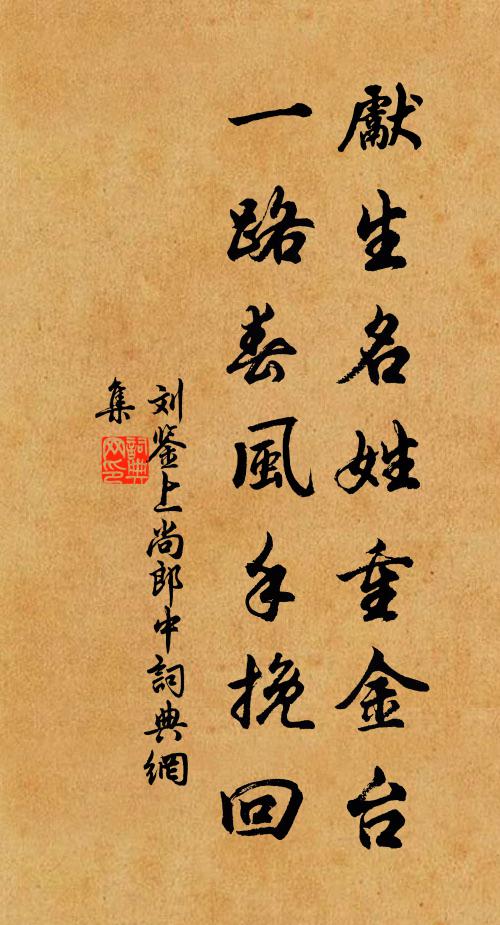 獻生名姓重金台
一路春風手挽回
刘鉴上尚郎中詞典網
集
詞典網印